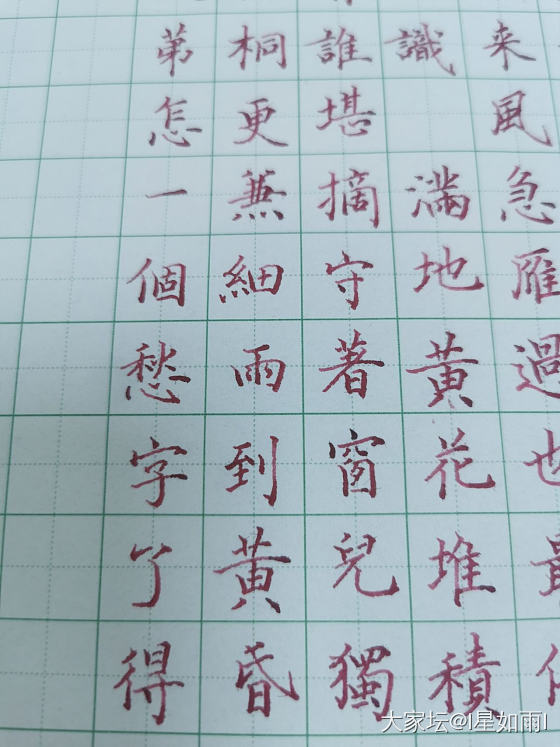 来風急雁過也最
識 滿地黄花堆積
誰堪摘守著窗兒獨
桐更兼細雨到黄昏
第怎一個愁字了得
大家坛@I星如雨I